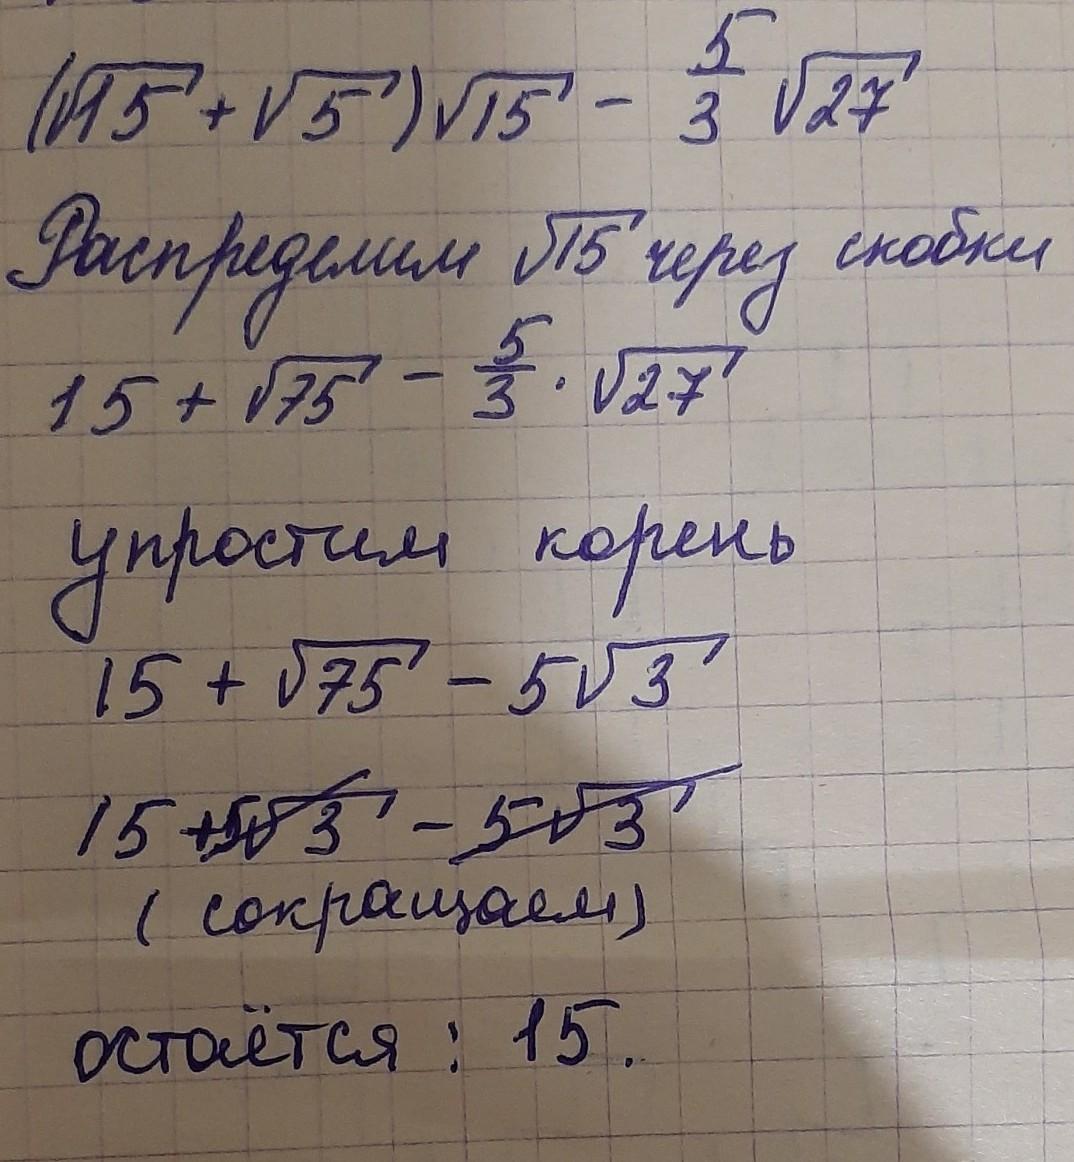 (√15 + √5)√15 - 5/3 √27
Распределим √15 через скобки
15 + √75 - 5/3 · √27
упростим корень
15 + √75 - 5√3
15 + 5√3 - 5√3
(сокращаем)
остаётся : 15.